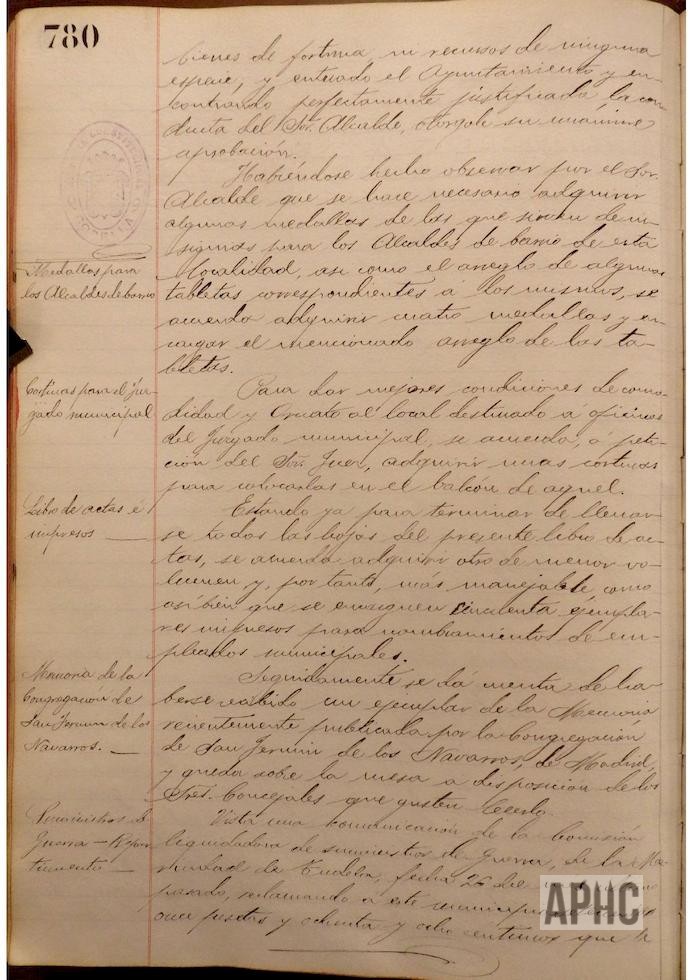 780
bienes de fortuna, ni recursos de ninguna
especie, y enterado el Ayuntamiento y en-
contrando perfectamente justificada la con-
ducta del Sor. Alcalde, otorgole su unanime
aprobación.
Habiéndose hecho observar por el Sor.
Alcalde que se hace necesario adquirir
algunas medallas de las que sirven de in-
signias para los Alcaldes de barrio de esta
Medallas para
los Alcaldes de barrio
localidad, asi como el arreglo de algunas
tabletas correspondientes á los mismos, se
acuerda adquirir cuatro medallas y en-
cargar el mencionado arreglo de las ta-
bletas.
Cortinas para el Juz-
gado municipal
Para dar mejores condiciones de como-
didad y ornato al local destinado á oficinas
del Juzgado municipal, se acuerda, á peti-
ción del Sor. Juez, adquirir unas cortinas
para colocarlas en el balcón de aquel.
Libro de actas é
impresos
Estando ya para terminar de llenar-
se todas las hojas del presente libro de ac-
tas, se acuerda adquirir otro de menor vo-
lumen y, por tanto, mas manejable, como
asi bien que se encarguen cincuenta ejempla-
res impresos para nombramientos de em-
pleados municipales.
Memoria de la
Congregación de
San Fermin de los
Navarros.
Seguidamente se da cuenta de ha-
berse recibido un ejemplar de la Memoria
recientemente publicada por la Congregación
de San Fermin de los Navarros, de Madrid,
y queda sobre la mesa a disposición de los
Sres. Concejales que gusten leerlo.
Suministros de
Guerra - Repar-
timiento
Vista una comunicación de la Comisión
liquidadora de suministros de Guerra, de la Me-
rindad de Tudela, fecha 26 de
pasado, reclamando á este municipio
once pesetas y ochenta y ocho centimos que le
APHC